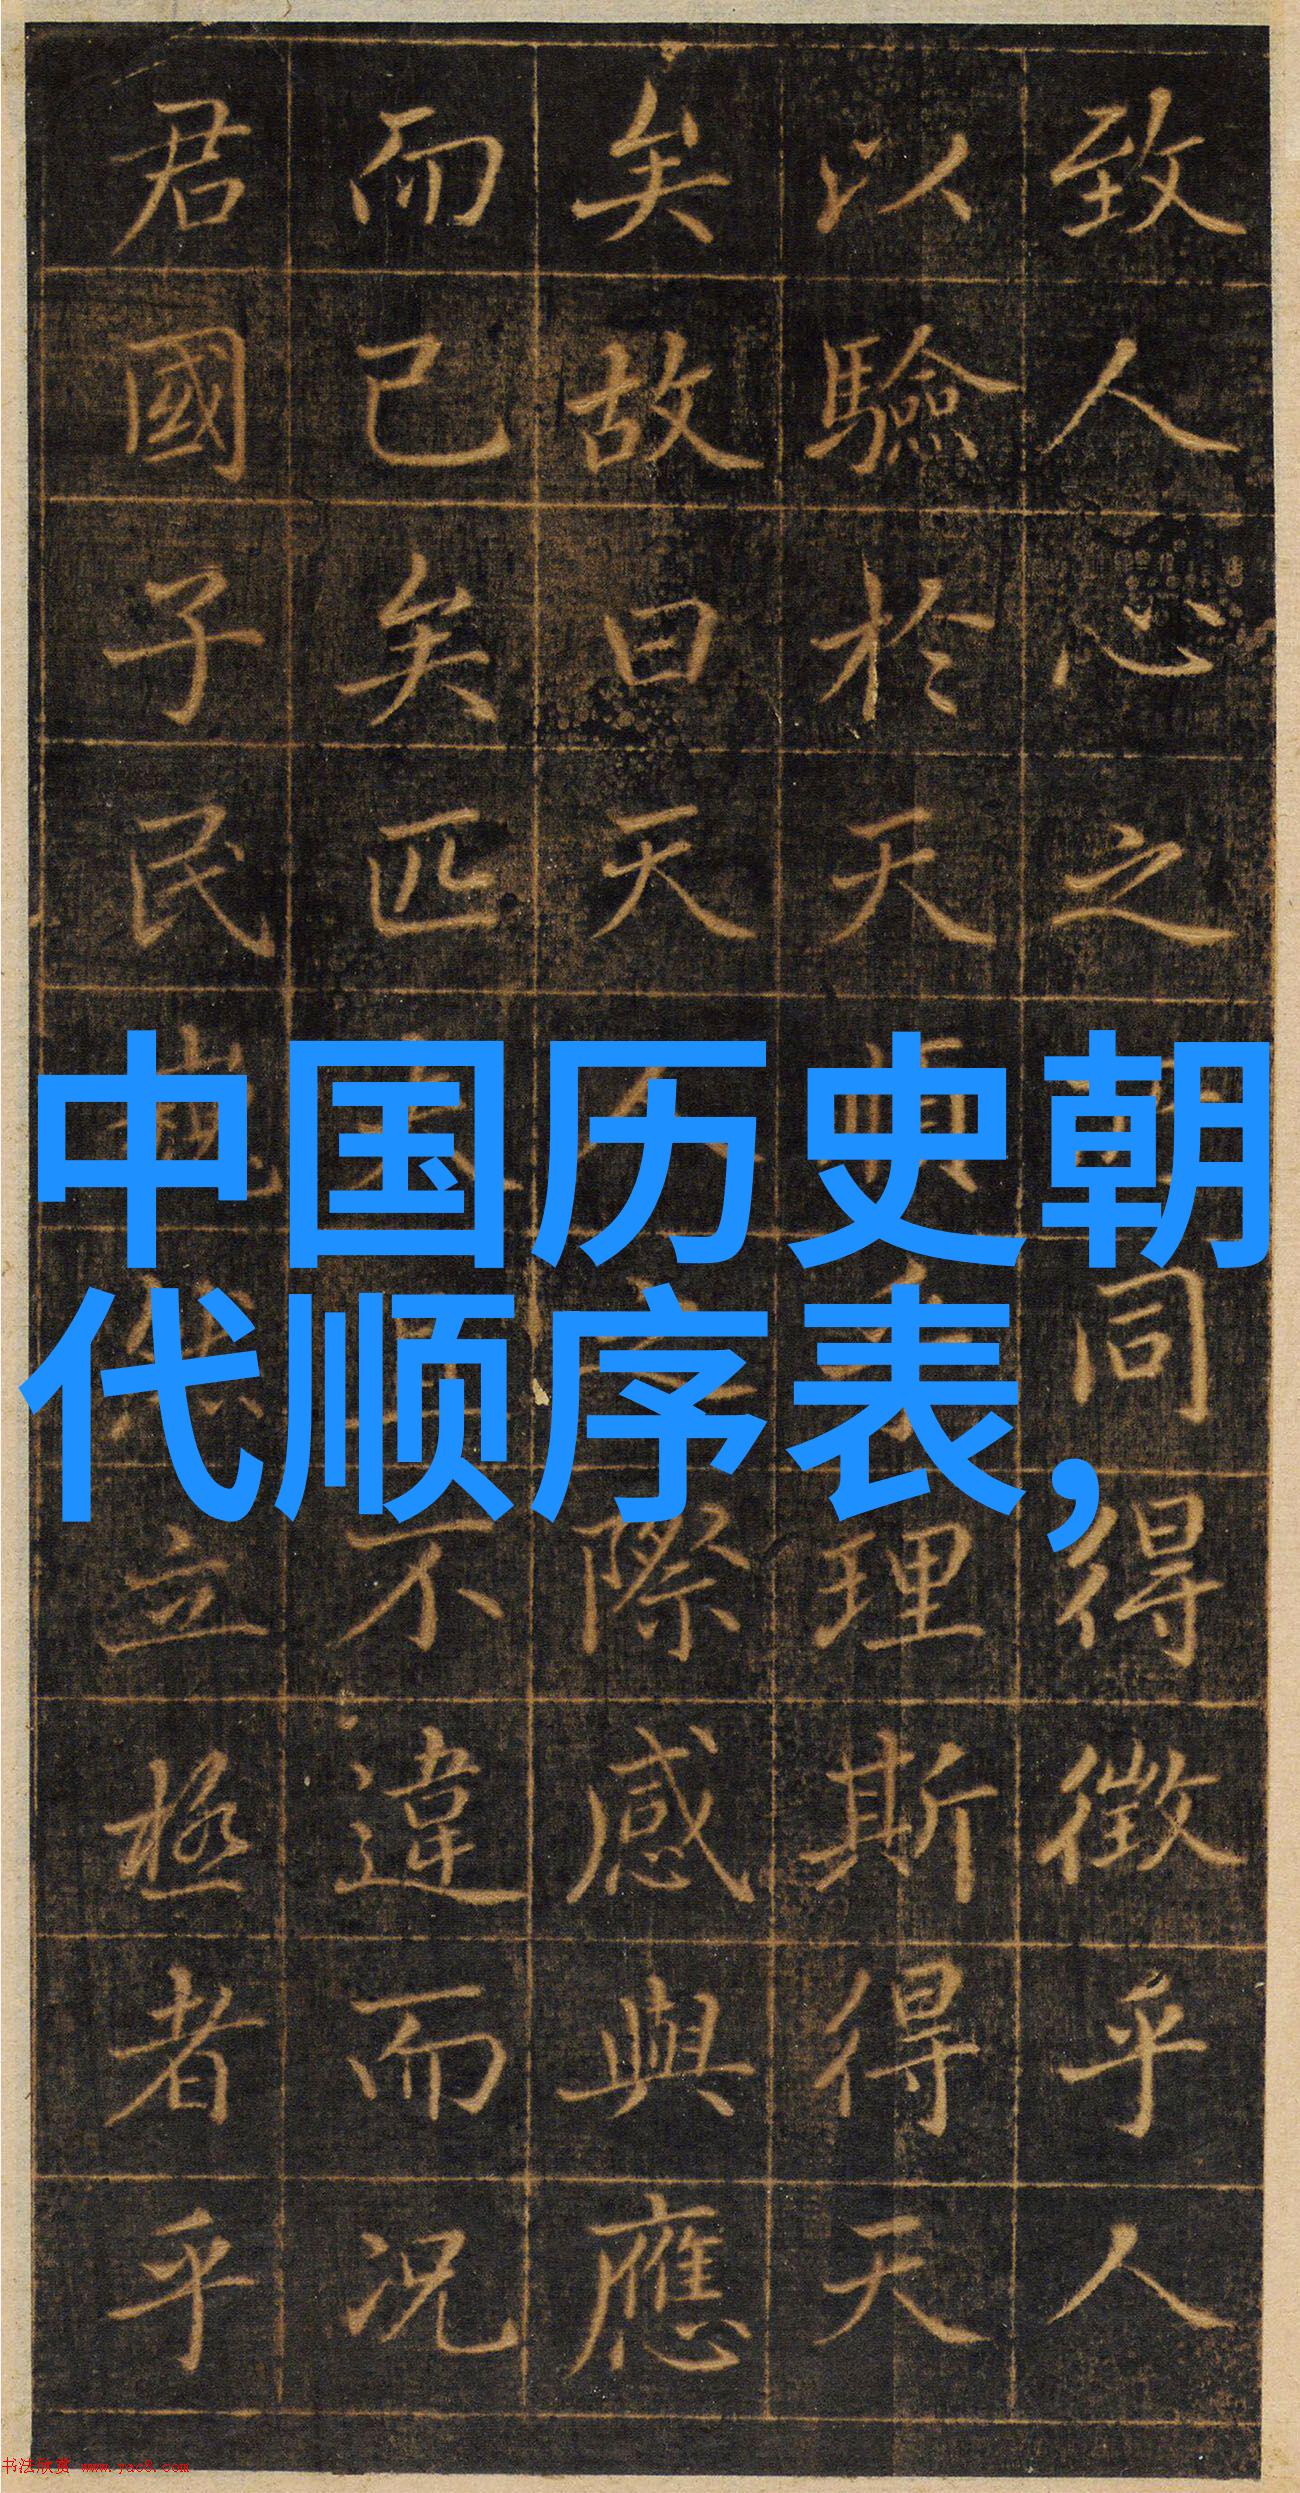 中国历史朝
代顺序表，
致人心之同得徵乎人
以驗於天理斯得天
矣故曰天人之際感與應
而已矣匹不違而況
君國子民立極者乎
书法欣赏 www.yac8.com